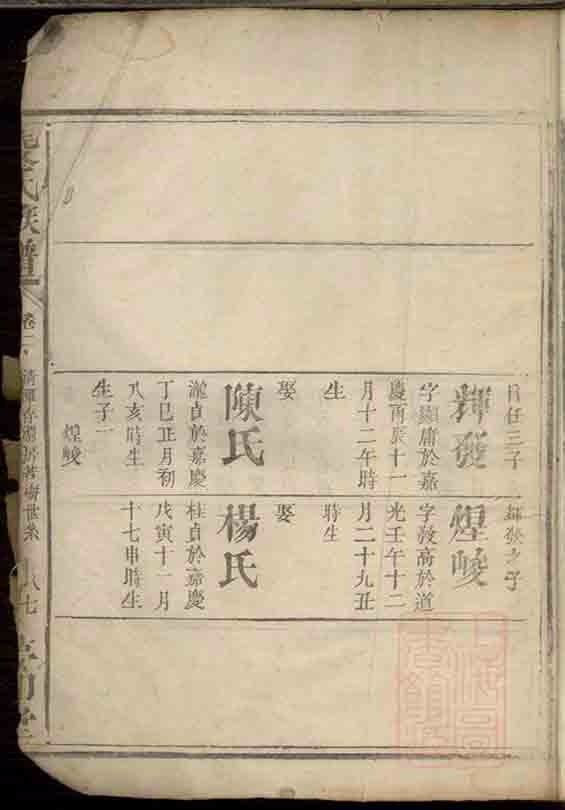 輝發
字顯庸於嘉
慶丙辰十一
月十二午時
生
娶
陳氏
瀧貞於嘉慶
丁巳正月初
八亥時生
生子一
煌峻
輝發之子
煌峻
字敦高於道
光壬午十二
月二十九丑
時生
娶
楊氏
桂貞於嘉慶
戊寅十一月
十七申時生
氏族譜
卷二